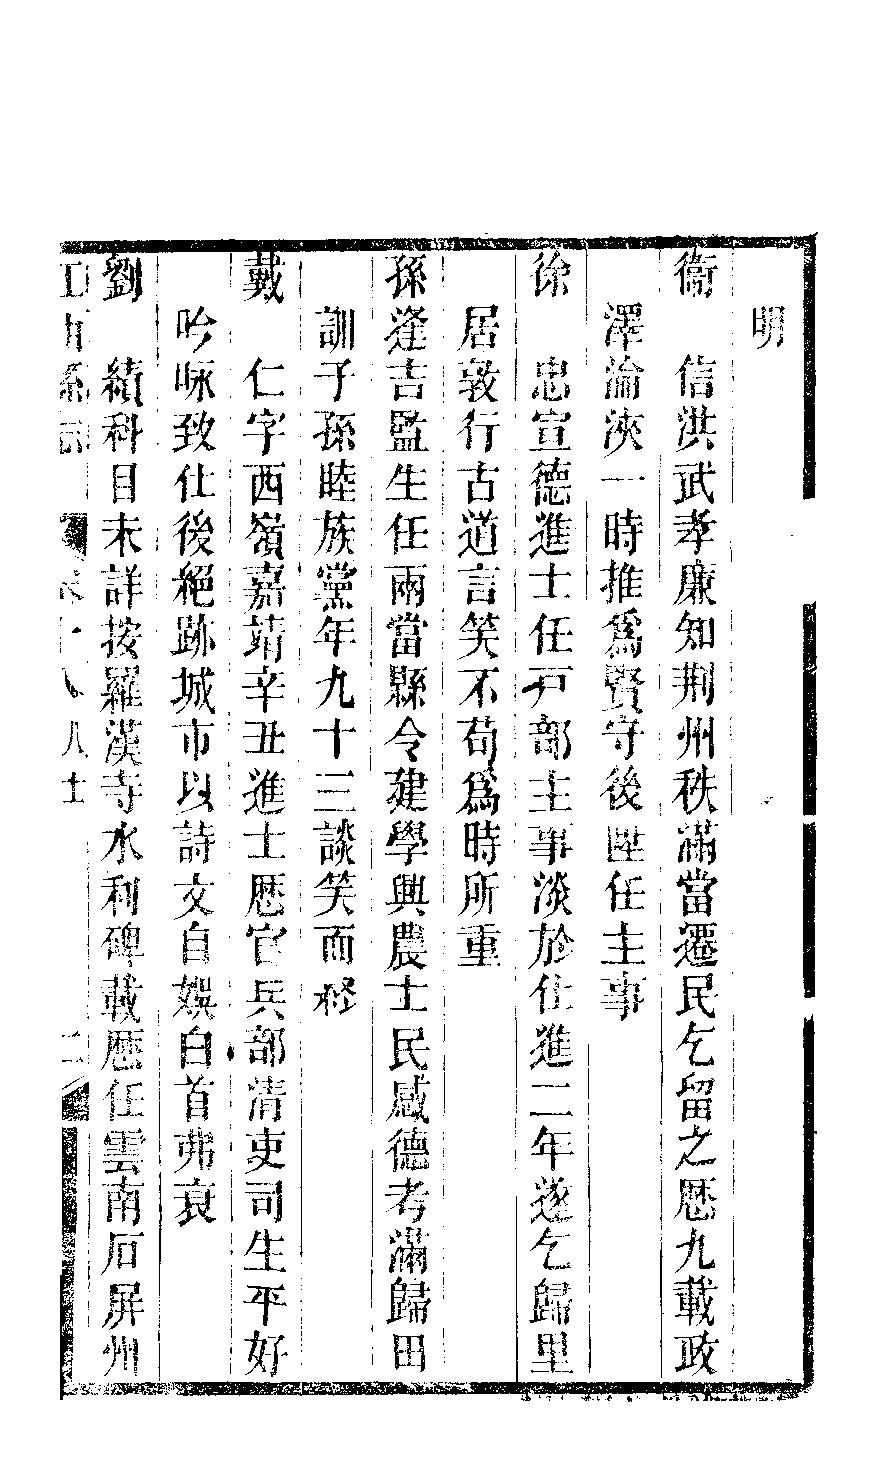 明
衞　信洪武孝廉知荆州秩滿當遷民乞留之歷九載政
澤淪浹一時推爲賢守後陞任主事
徐　忠宣德進士任戸部主事淡於仕進二年遂乞歸里
居敦行古道言笑不苟爲時所重
孫逢吉監生任兩當縣令建學興農士民感德考滿歸田
訓子孫睦族黨年九十三談笑而終
戴　仁字西嶺嘉靖辛丑進士歷官兵部清吏司生平好
吟咏致仕後絕跡城市以詩文自娛白首弗衰
劉　績科目未詳按羅漢寺水利碑載歷任雲南石屏州